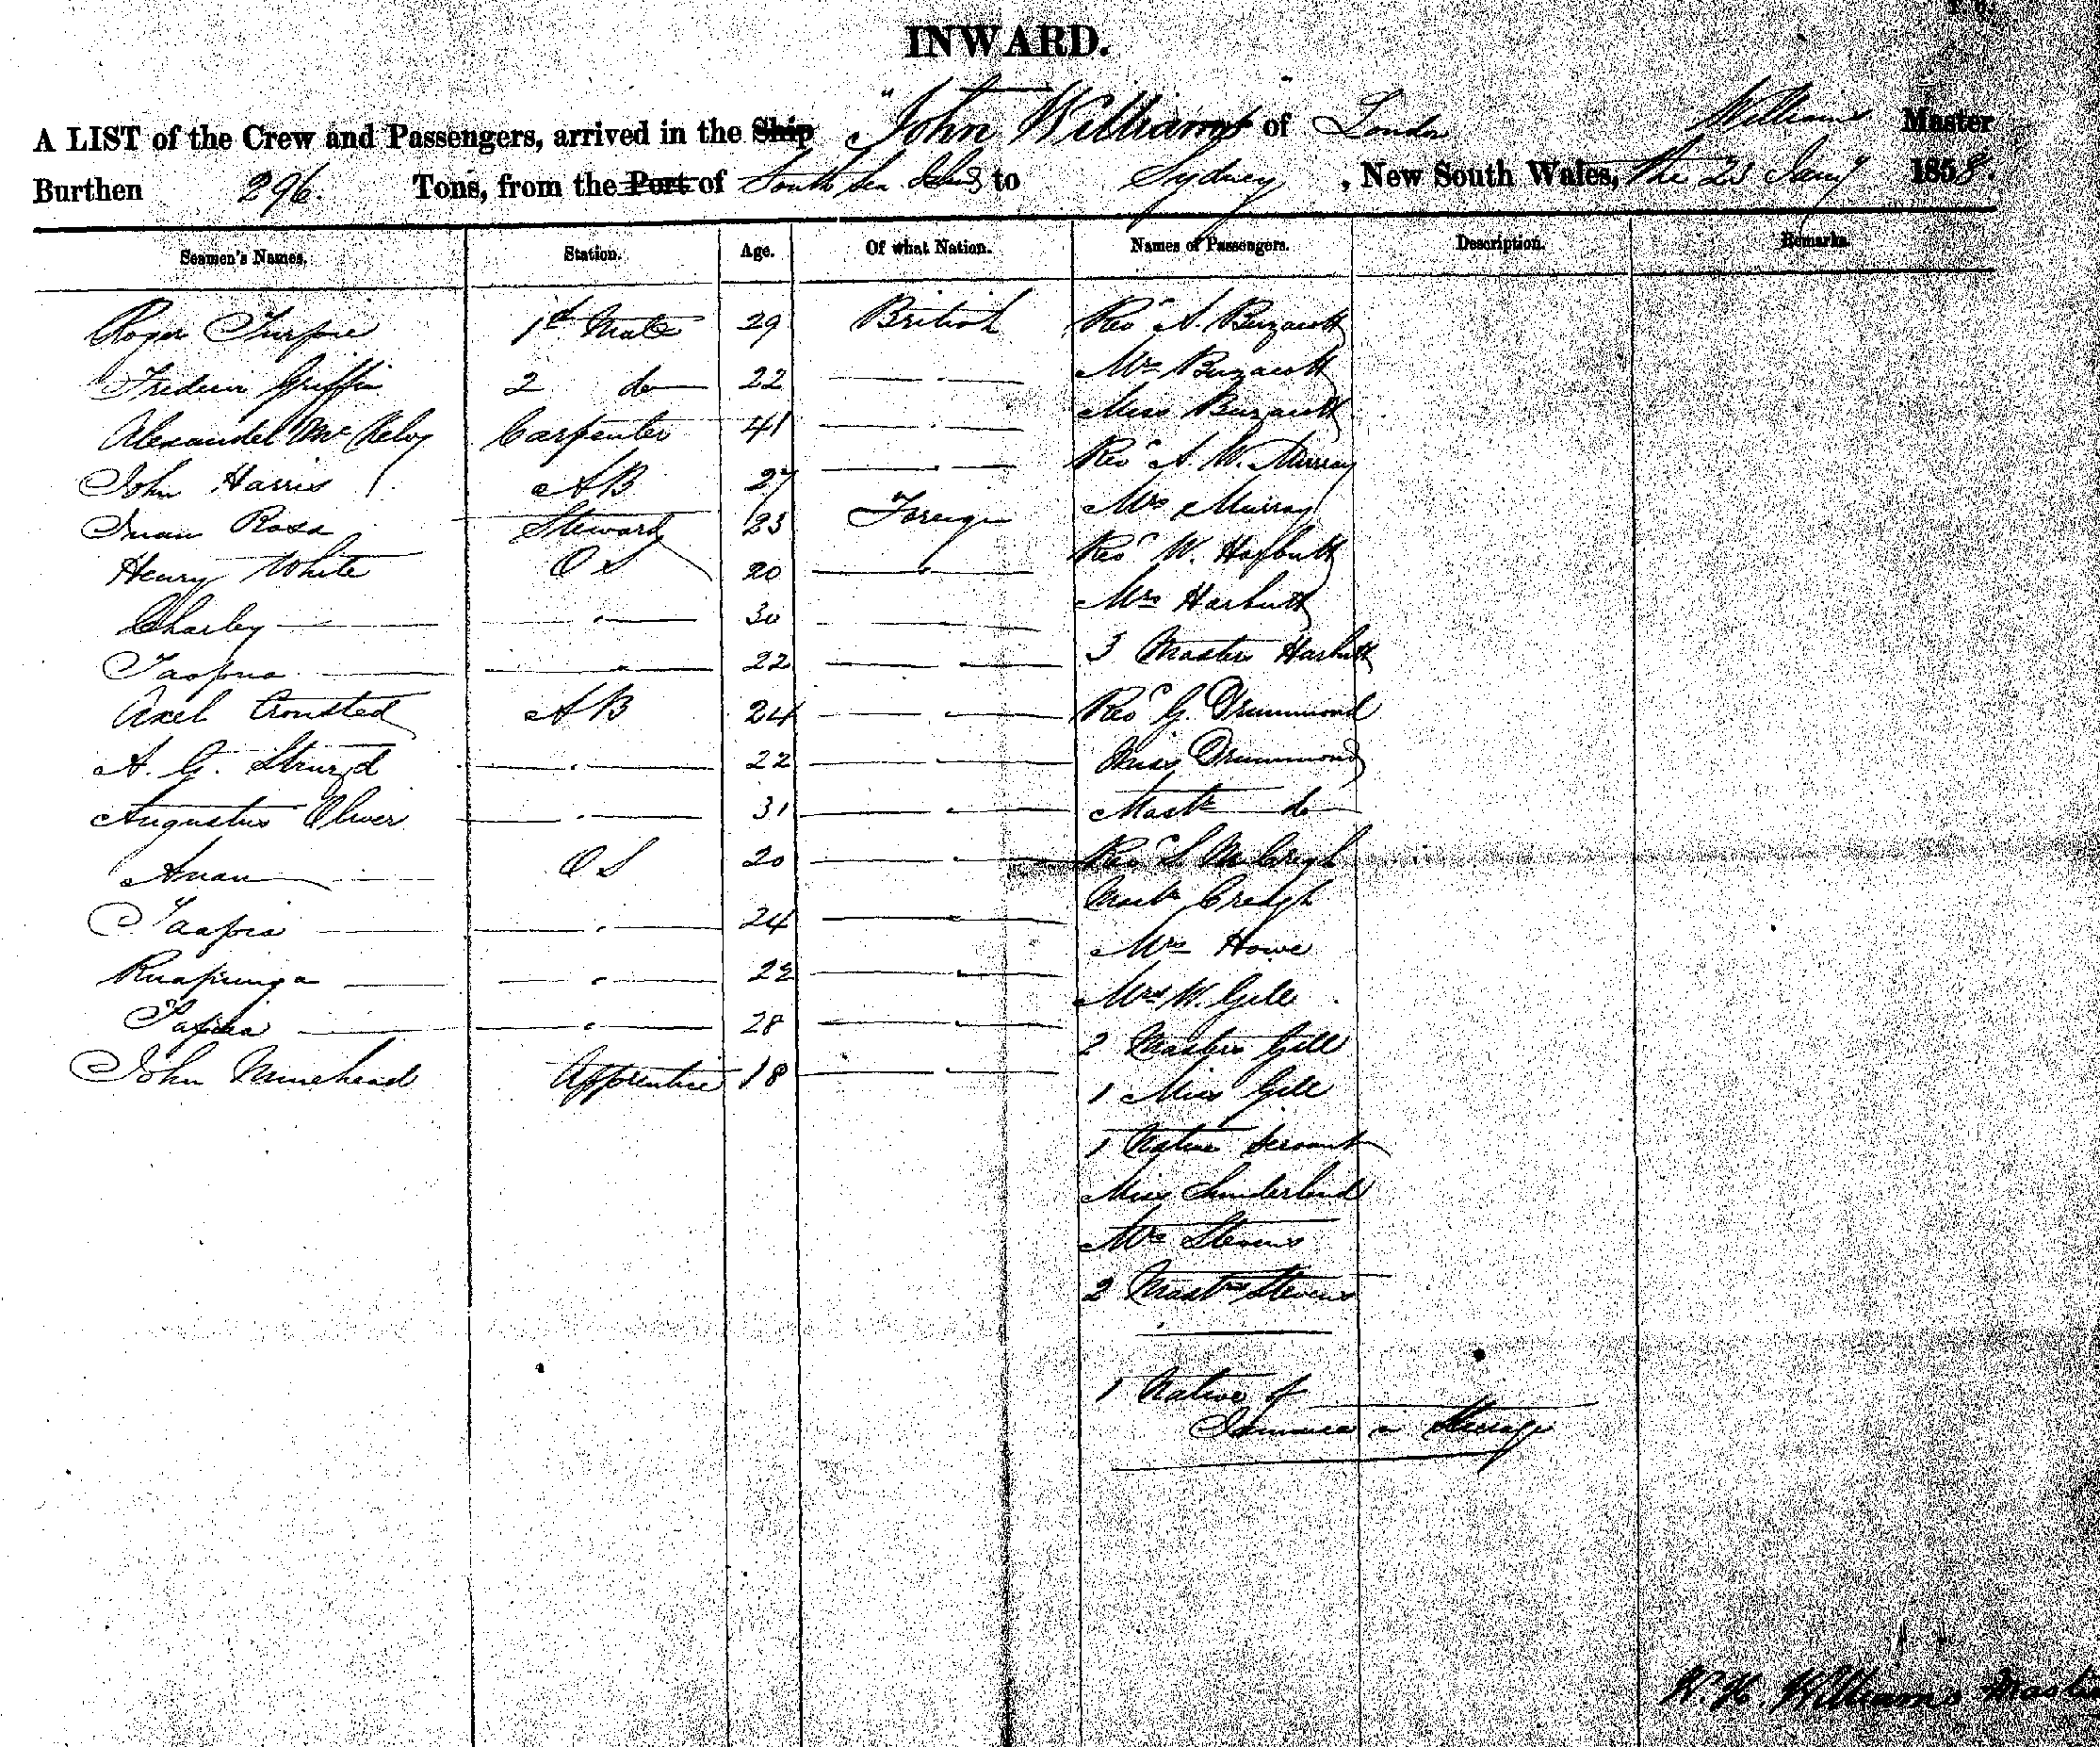 INWARD.
A LIST of the Crew and Passengers, arrived in the Ship "John Williams" of London Williams Master
Burthen 296. Tons, from the Port of South Sea Islds to Sydney, New South Wales, the 23 Jany 1858.
Seamen's Names. Station. Age. Of what Nation. Names of Passengers. Description. Remarks.
Roger Turpie 1st Mate 29 British Revd A. Buzacott
Griffin 2 do 22 Mrs Buzacott
Miss Buzacott
Alexander Mc Kelvy Carpenter 41
Revd A. W. Murray
John Harris AB 27
Mrs Murray
Juan Rosa Steward 23 Foreign
Henry White O S 20 Revd W. Harbutt
Mrs Harbutt
Charley 30
3 Masters Harbutt
22
Axel Cronsted AB 24 Revd G. Drummond
A. G. 22 Miss Drummond
Augustus Oliver 31 Mastr do
Anau O S 20 Revd S. M. Creagh
Mastr Creagh
24
Mrs Howe
Ruapunga 22
Mrs W. Gill
28
2 Masters Gill
John Minehead Apprentice 18
1 Miss Gill
1 Native Servant
Miss Sunderland
Mrs Stevens
2 Mastrs Stevens
1 Native of
Jamaica in Steerage
W. H. Williams Master